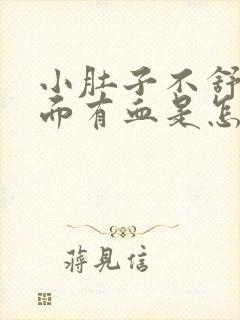 小肚子不舒
而有血是怎
蒋见信